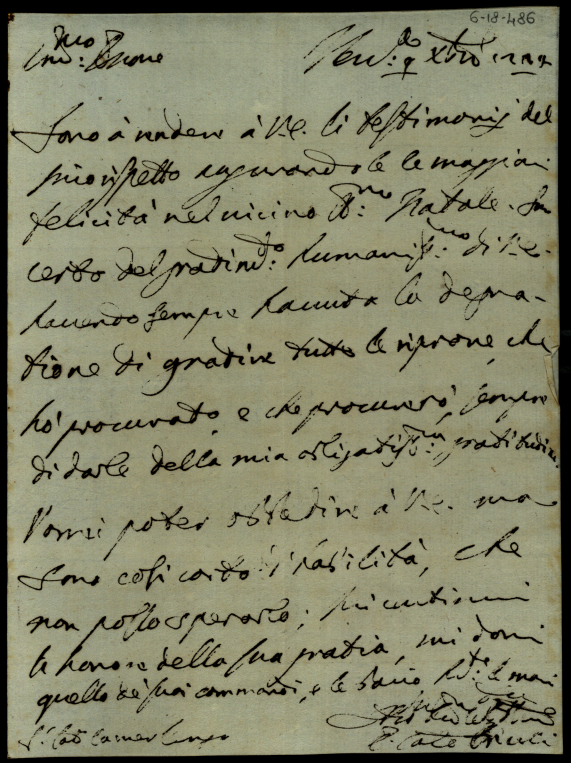 6-18-486
Sono à rendere à V.E. li testimonij del
mio rispetto augurandole le maggiori
felicità nel vicino S.mo Natale. Son
certo del gradim.to humaniss.mo di V.E.
havendo sempre havuta la degna-
tione di gradire tutte le riprove, che
hò procurato, e che procurerò sempre
di darle della mia obligatiss.ma gratitudine.
Vorrei poter obbedire à V.E. ma
sono così corto d'habilità, che
non posso sperarlo; mi continui
le honore della sua gratia, mi doni
quello de suoi commandi, e le bacio le mani
S.r Card Camerlengo